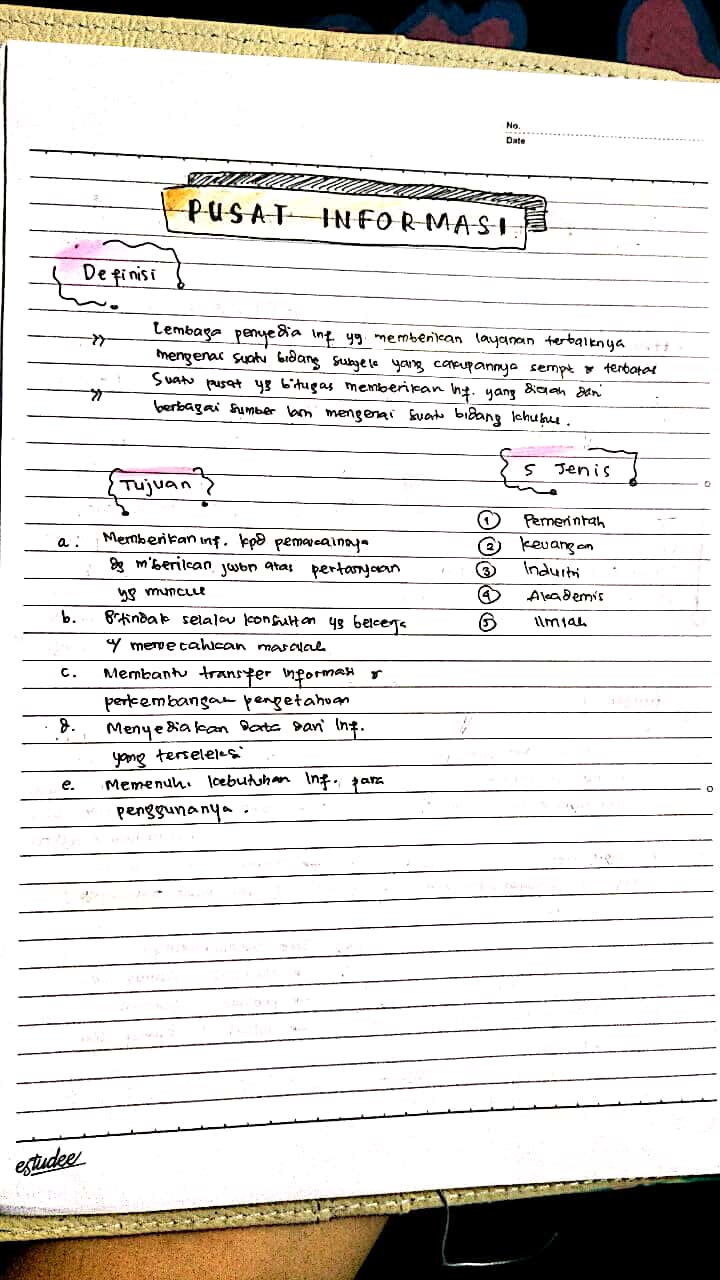 No.
Date
PUSAT INFORMASI
Definisi
>> Lembaga penyedia inf yg. memberikan layanan terbaiknya
mengenai suatu bidang subyek yang cakupannya sempit & terbatas
>> Suatu pusat yg bitugas memberikan inf. yang diolah dari
berbagai sumber lain mengenai suatu bidang khusus.
Tujuan
a. Memberikan inf. kpd pemakainnya
dg m'berikan jwbn atas pertanyaan
yg muncul
b. B'tindak selalau konsultan yg bekerja
u/ memecahkan masalah
c. Membantu transfer informasi &
perkembangan pengetahuan
d. Menyediakan data dari Inf.
yang terseleksi
e. Memenuhi kebutuhan Inf. para
penggunanya.
5 Jenis
① Pemerintah
② keuangan
③ Industri
④ Akademis
⑤ Ilmiah
estudee